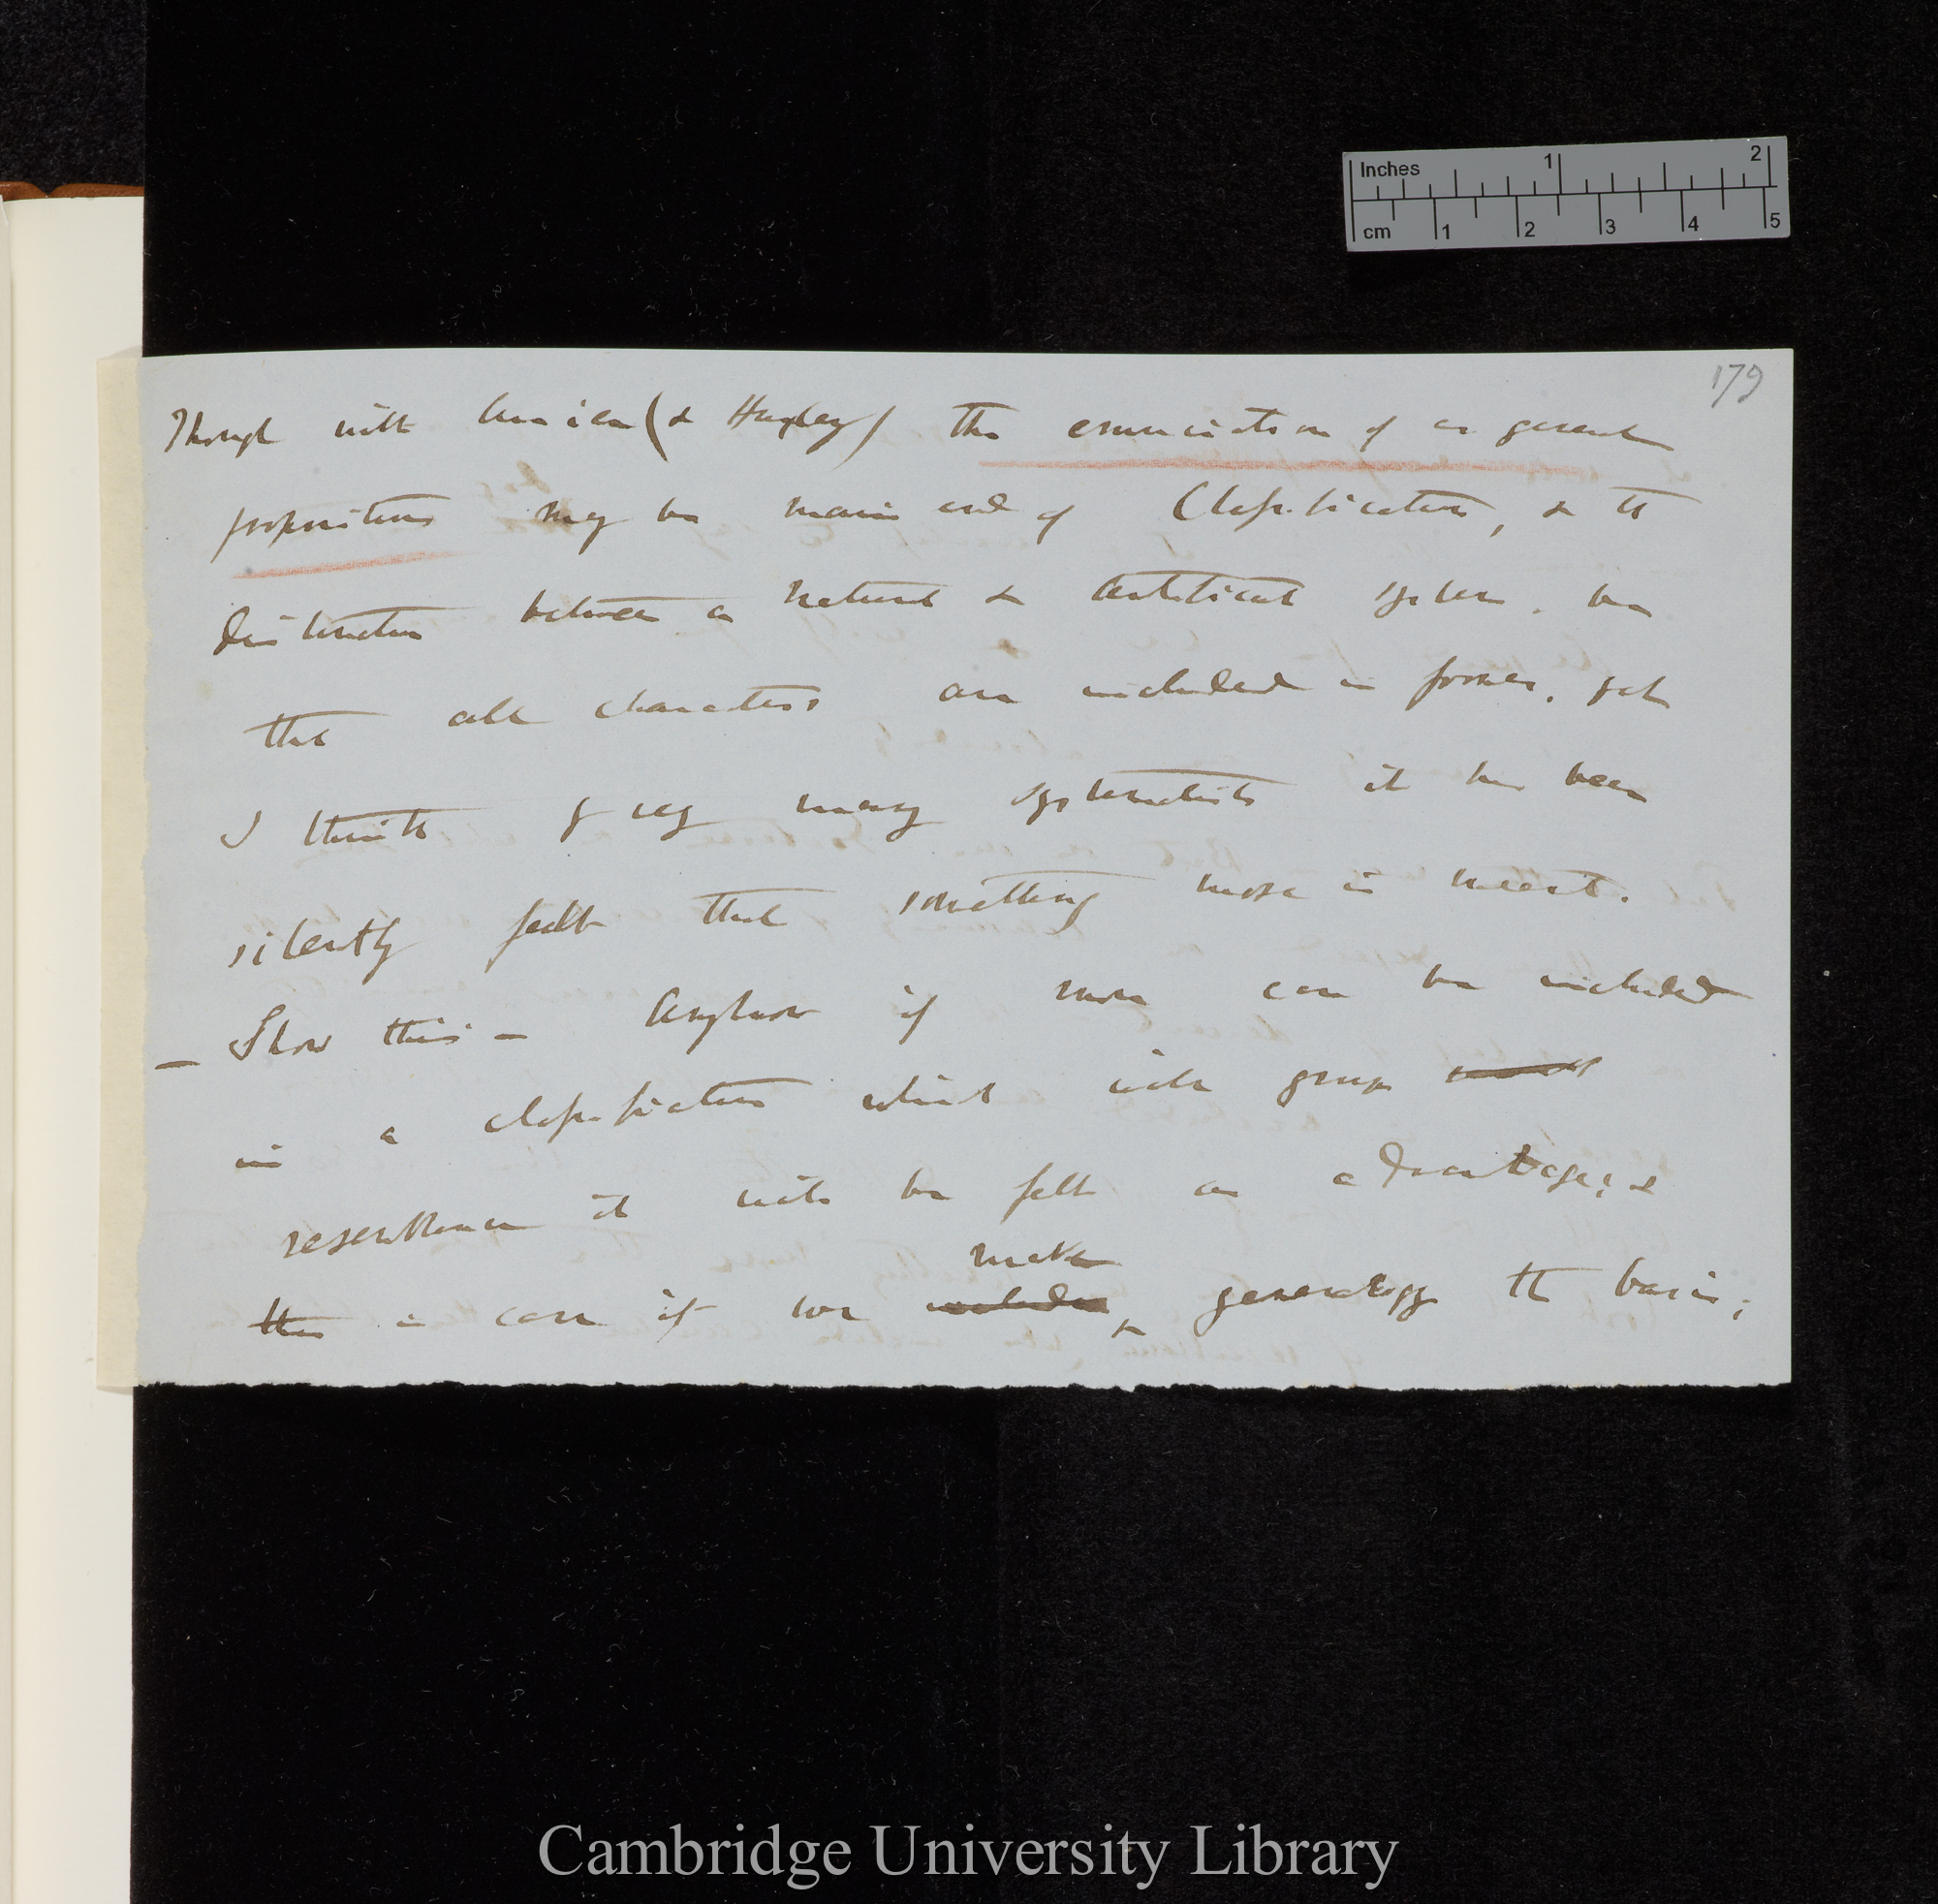 Inches 1 2
cm 1 2 3 4 5
179
Though with (& Huxley) the enunciation of a general
proposition may be main end of Classification, & the
distinction between a natural & artificial system, be
that all characters are included in former, yet
I think by many systematists it has been
silently felt that something more is meant.
– Show this – Anyhow if more can be included
in a classification which will group
resemblance it will be felt an advantage; &
make
this is case if we include genealogy the basis;
Cambridge University Library